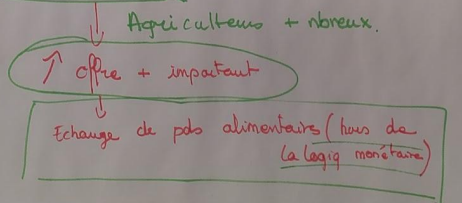 Agriculteurs + nbreux.
↑ offre + important
Echange de pds alimentairs (hors de
la logiq monétaire)